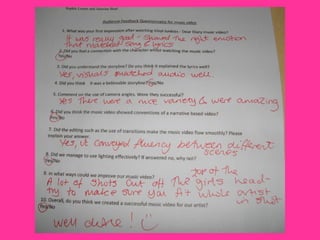 Sophie Lorton and Jemima Neal
Audience Feedback Questionnaire for music video
1. What was your first expression after watching Vinzi Jowkes - Dear Diary music video?
It was really good - showed the right emotion
that matched song & lyrics
2. Did you feel a connection with the character whilst watching the music video?
Yes/No
3. Did you understand the storyline? Do you think it explained the lyrics well?
Yes, visuals matched audio well.
4. Did you think it was a believable storyline? Yes/No
5. Comment on the use of camera angles. Were they successful?
Yes there were a nice variety & were amazing
6. Did you think the music video showed conventions of a narrative based video?
Yes/No
7. Did the editing such as the use of transitions make the music video flow smoothly? Please
explain your answer.
Yes, it conveyed fluency between different
scenes
8. Did we manage to use lighting effectively? If answered no, why not?
Yes/No
9. In what ways could we improve our music video?
A lot of shots cut off the top of the girls head -
try to make sure you fit whole artist
in shot
10. Overall, do you think we created a successful music video for our artist?
Yes/No
well done!